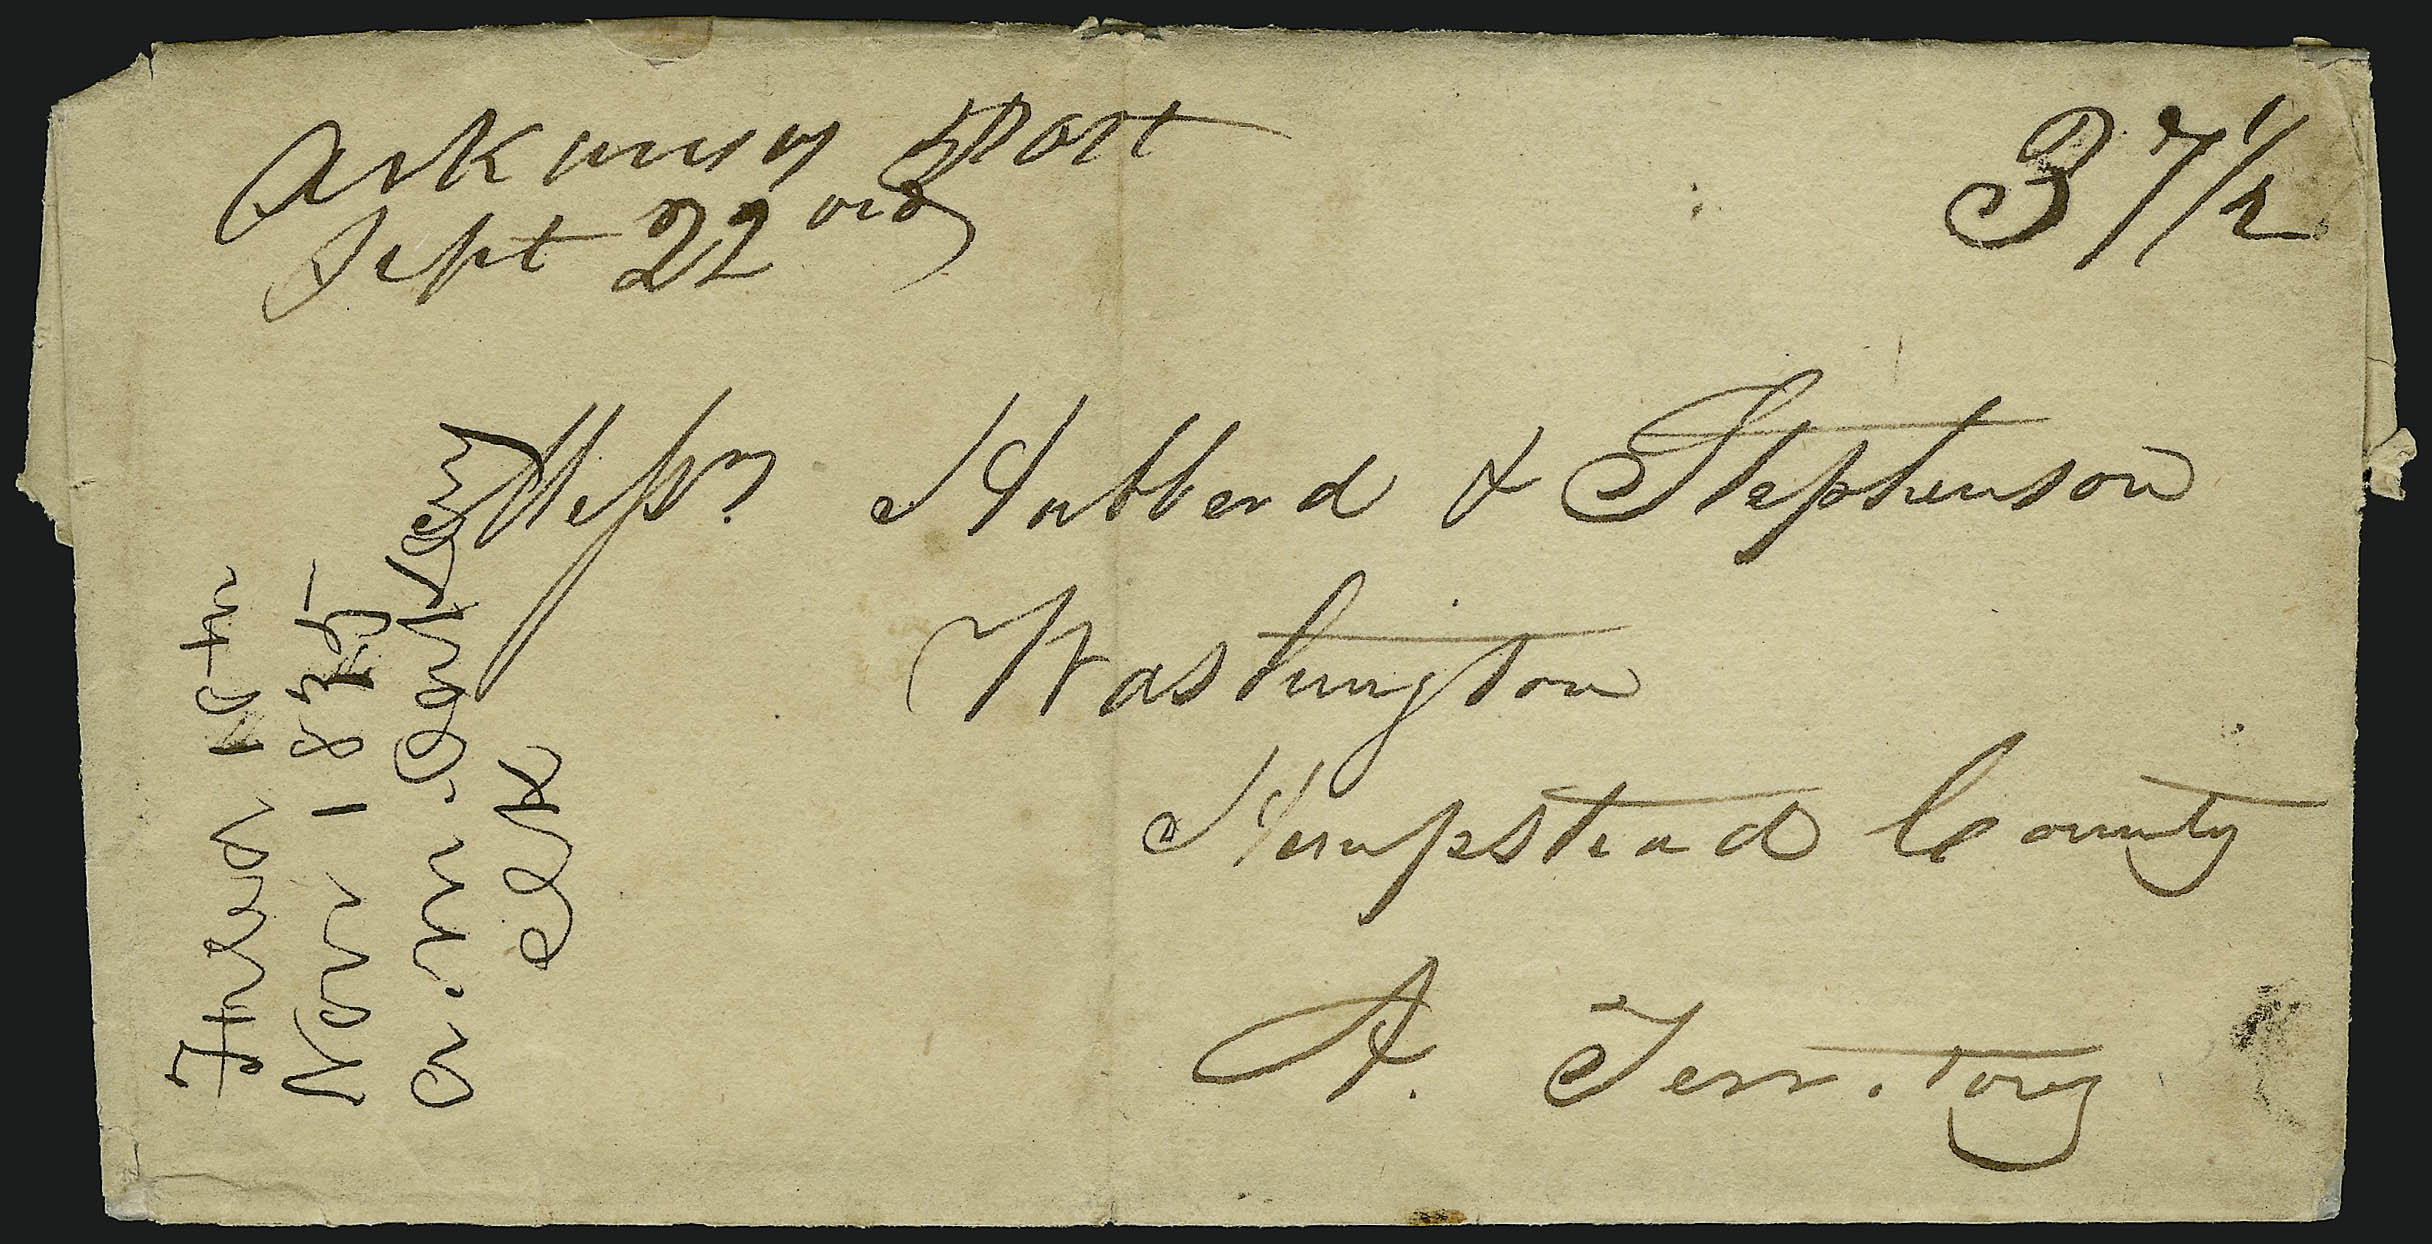 Arkansas Post
Sept 22nd
37 1/2
Messrs Hubberd & Stephenson
Washington
Hempstead County
A. Territory
Filed 10th
Novr 1827
A. M. Oakley
Clk